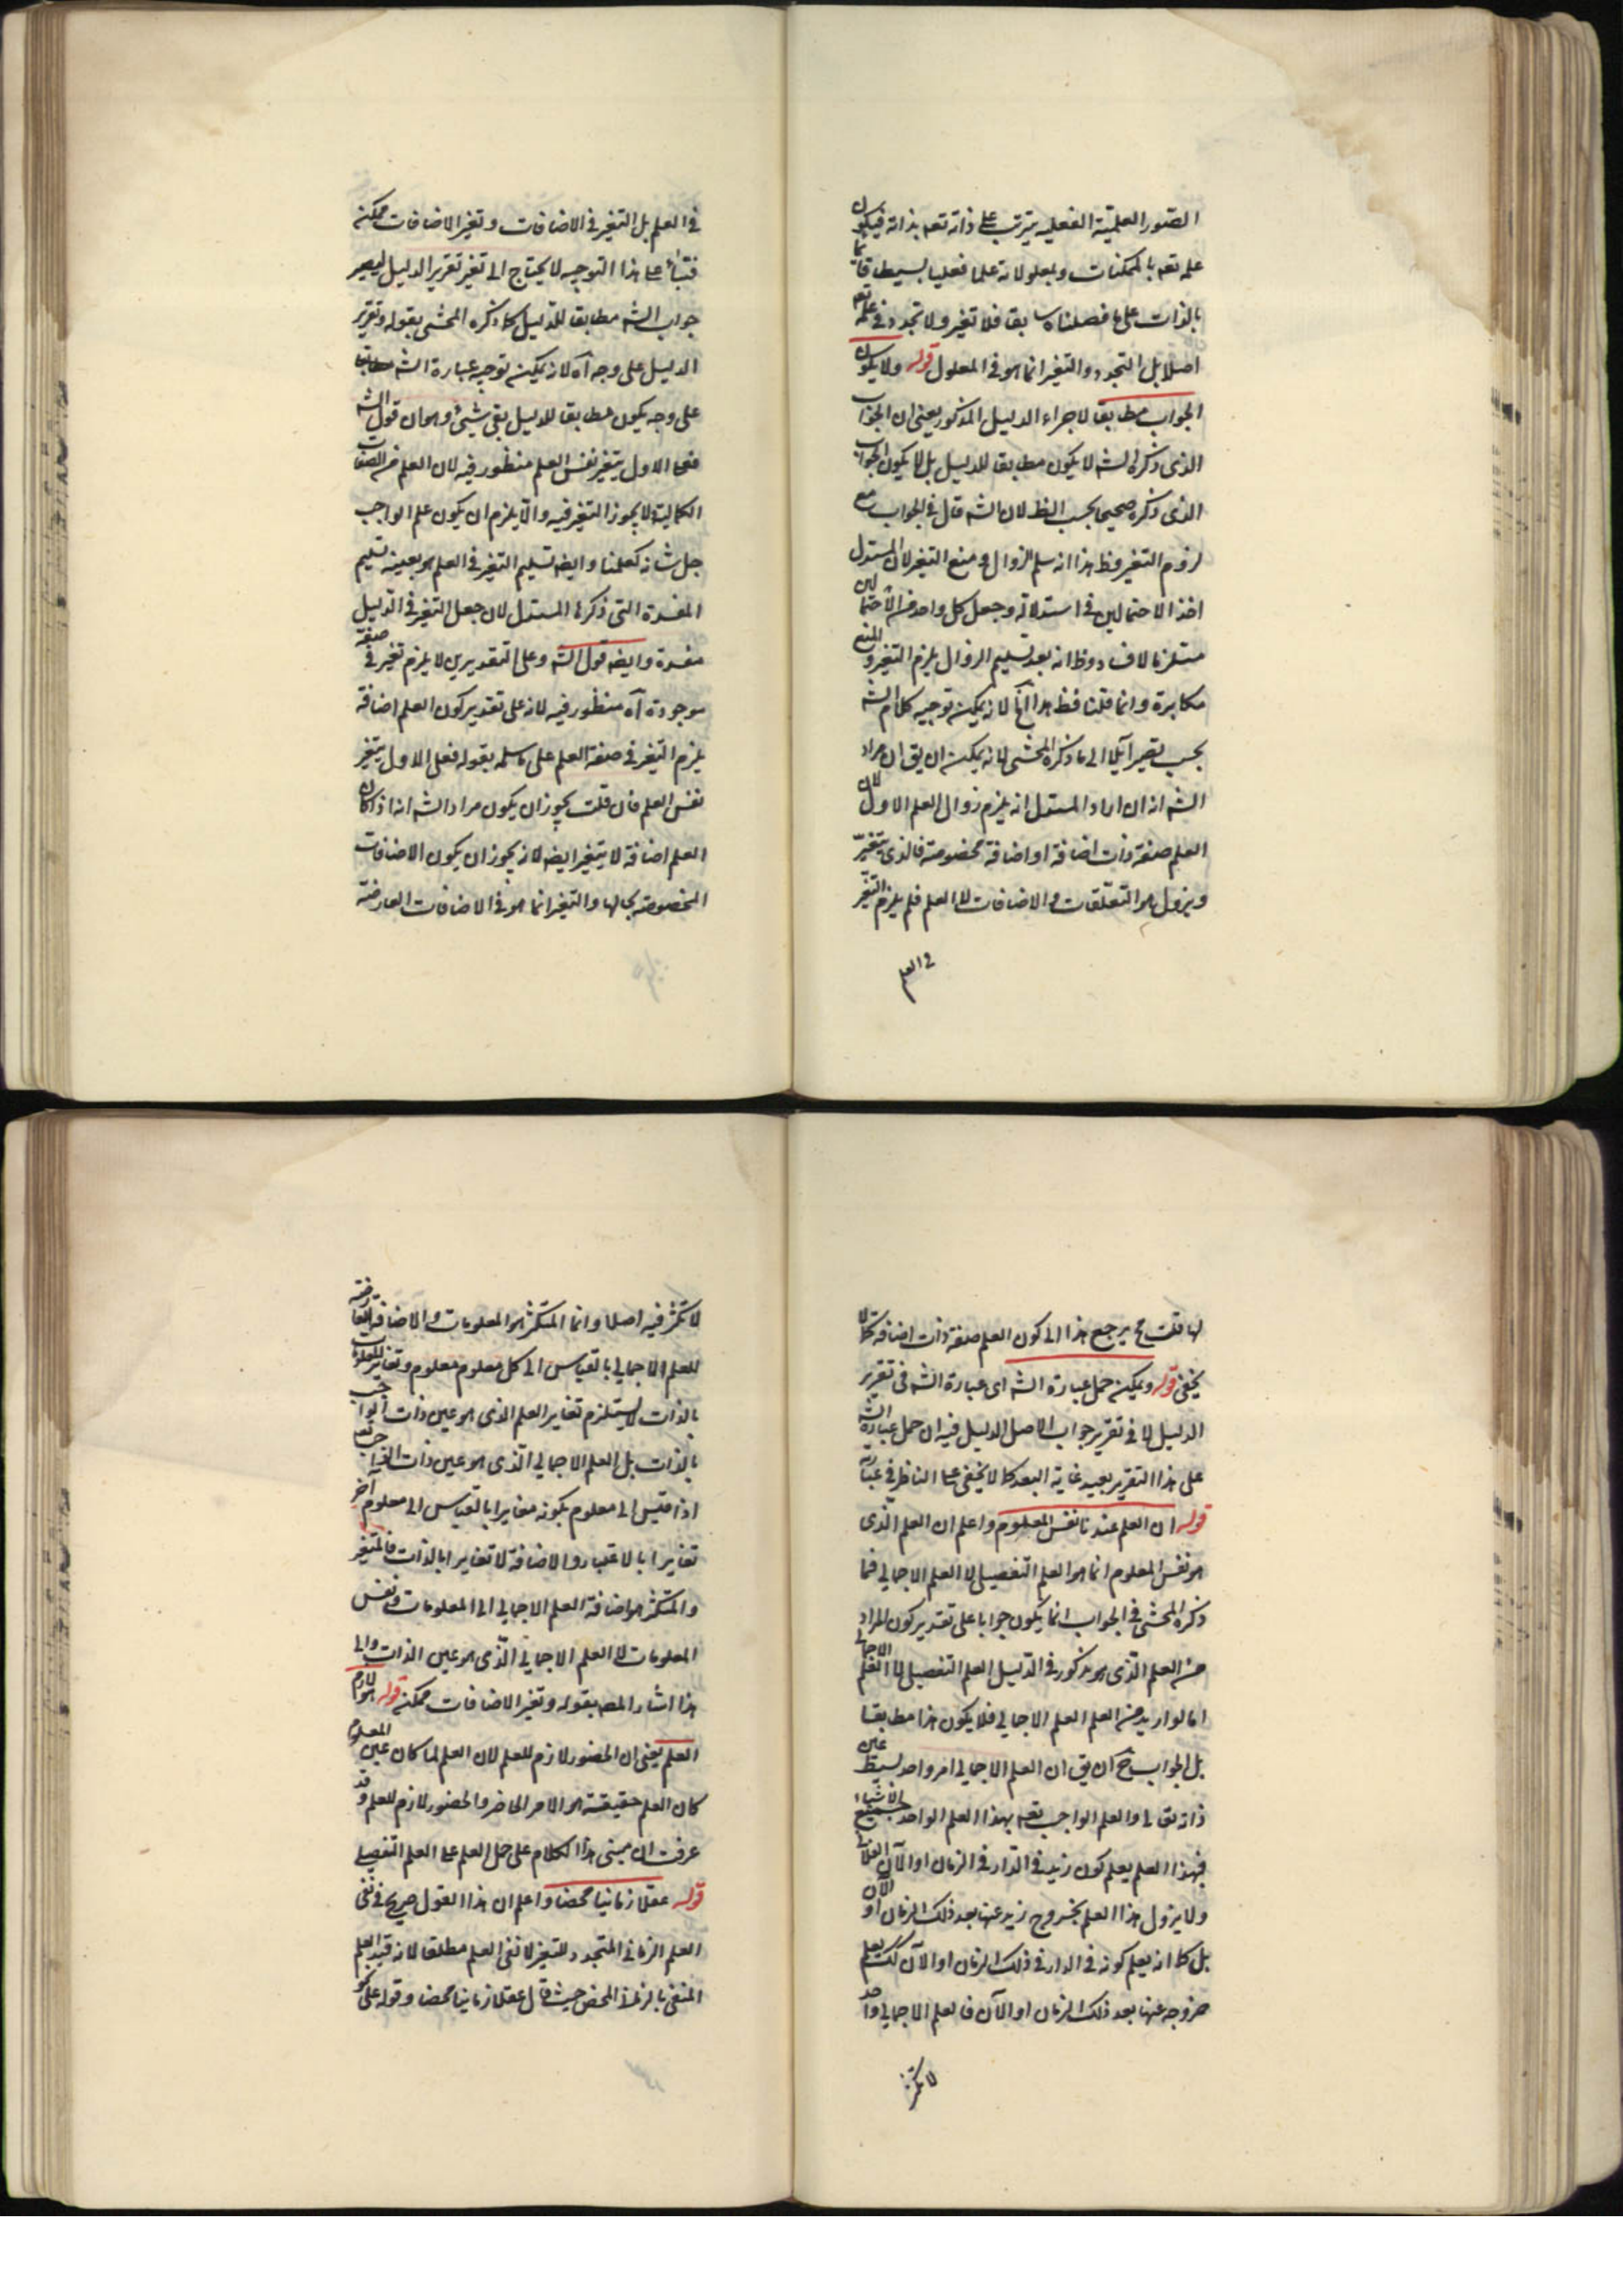 الصّور العلميّة الفعليه يترتب على ذاته تعه بذاته فيكون
علمه تعه بالممكنات ومعلولاته علما فعليا بسيطا قائما
بالذات على ما فصلناه سابقا فلا تغير ولا تجدد في علمه تعه
اصلا بل التجدد والتغير انما هو في المعلول قوله ولا يكون
الجواب مطابقا لاجراء الدليل المذكور يعني ان الجواب
الذى ذكره الشه لا يكون مطابقا للدليل بل لا يكون الجواب
الذى ذكره صحيحا بحسب الظ لان الشه قال في الجواب مع
لزوم التغير فظ هذا انه سلم الزوال و منع التغير لان المستدل
اخذ الاحتمالين في استدلاله وجعل كل واحد من الاحتمالين
مستلزما لافساد وظ انه بعد تسليم الزوال يلزم التغير والمنع
مكابرة وانما قلنا فظ هذا لانه يمكن توجيه كلام الشه
بحسب يصير آيلا الى ما ذكره المحشى لانه يمكن ان يق ان مراد
الشه انه ان اراد المستدل انه يلزم زوال العلم الاول لان
العلم صفة ذات اضافة او اضافة مخصوصة فالذى يتغيّر
ويزول هو التعلّقات والاضافات لا العلم فلم يلزم التغيّر
في العلم
في العلم بل التغير في الاضافات وتغير الاضافات ممكن
فبناء على هذا التوجيه لا يحتاج الى تغير تقرير الدليل ليصير
جواب الشه مطابقا للدليل كما ذكره المحشى بقوله وتقرير
الدليل على وجه آه لانه يمكن توجيه عبارة الشه
على وجه يكون مطابقا للدليل بقى شيئ وهو ان قول الشه
فعلى الاول يتغير نفس العلم منظور فيه لان العلم من الصفات
الكمالية لا يجوز التغير فيه والا يلزم ان يكون علم الواجب
جل شانه كعلمنا وايضه تسليم التغير في العلم هو بعينه تسليم
المفسدة التى ذكرها المستدل لان جعل التغير في الدليل
مفسدة وايضه قول الشه وعلى التقديرين لا يلزم تغير في صفة
موجودة آه منظور فيه لانه على تقدير كون العلم اضافة
يلزم التغير في صفة العلم على ما سلمه بقوله فعلى الاول يتغير
نفس العلم فان قلت يجوز ان يكون مراد الشه انه اذا كان
العلم اضافة لا يتغير ايضه لانه يجوز ان يكون الاضافات
المخصوصة بحالها والتغير انما هو في الاضافات العارضة
لها قلت ح يرجع هذا الى كون العلم صفة ذات اضافة كما لا
يخفى قوله ويمكن حمل عبارة الشه اى عبارة الشه فى تقرير
الدليل لا في تقرير جواب الاصل الدليل فيه ان حمل عبارة الشه
على هذا التقرير بعيد غاية البعد كما لا يخفى على الناظر في عبارته
قوله ان العلم عندنا نفس المعلوم واعلم ان العلم الّذى
هو نفس المعلوم انما هو العلم التفصيلى لا العلم الاجمالي فما
ذكره المحشى في الجواب انما يكون جوابا على تقدير كون المراد
من العلم الّذى هو مذكور في الدليل العلم التفصيلى لا العلم الاجمالى
اما لو اريد من العلم العلم الاجمالي فلا يكون هذا مطابقا
بل الجواب ح ان يق ان العلم الاجمالي امر واحد بسيط عين
ذاته تعالى والعلم الواجب تعه بهذا العلم الواحد جميع الاشياء
فبهذا العلم يعلم كون زيد في الدار في الزمان او الآن الفلانى
ولا يزول هذا العلم بخروج زيد عنها بعد ذلك الزمان او الآن
بل كما انه يعلم كونه في الدار في ذلك الزمان او الآن كك يعلم
خروجه عنها بعد ذلك الزمان او الآن فالعلم الاجمالي واحد
لا تكثر
لا تكثر فيه اصلا وانما المتكثر هو المعلومات والاضافة العارضة
للعلم الاجمالي بالقياس الى كل معلوم معلوم وتغاير المعلومات
بالذات لا يستلزم تغاير العلم الذى هو عين ذات الواجب
بالذات بل العلم الاجمالي الّذى هو عين ذات الواجب تعه
اذا قيس الى معلوم يكون مغايرا بالقياس الى معلوم آخر
تغايرا بالاعتبار والاضافة لا تغايرا بالذات فالمتغير
والمتكثر هو اضافة العلم الاجمالي الى المعلومات ونفس
المعلومات لا العلم الاجمالي الّذى هو عين الذات والى
هذا اشار المصه بقوله وتغير الاضافات ممكن قوله هو لازم
العلم يعنى ان الحضور لازم للعلم لان العلم لما كان عين المعلوم
كان العلم حقيقة هو الامر الحاضر والحضور لازم للعلم وقد
عرفت ان مبنى هذا الكلام على حمل العلم على العلم التفصيلى
قوله عقلا زمانيا محضا واعلم ان هذا القول صريح في نفى
العلم الزمانى المتجدد للتغير لا نفى العلم مطلقا لانه قيد العلم
المنفى بالزمانى المحض حيث قال عقلا زمانيا محضا وقوله على نحو